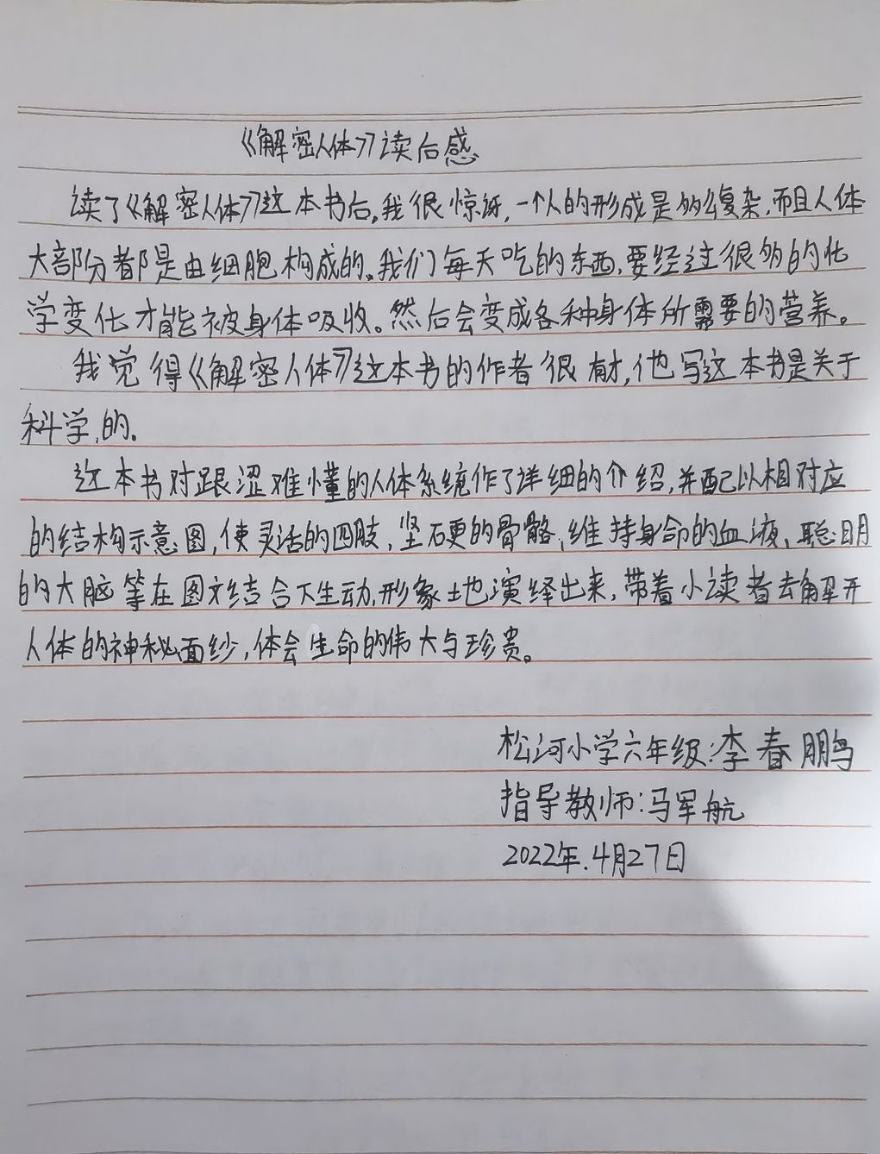 《解密人体》读后感
读了《解密人体》这本书后,我很惊讶,一个人的形成是多么复杂,而且人体
大部分都是由细胞构成的,我们每天吃的东西,要经过很多的化
学变化才能被身体吸收。然后会变成各种身体所需要的营养。
我觉得《解密人体》这本书的作者很有才,他写这本书是关于
科学,的。
这本书对跟涩难懂的人体系统作了详细的介绍,并配以相对应
的结构示意图,使灵活的四肢、坚硬的骨骼、维持身命的血液、聪明
的大脑等在图文结合下生动,形象地演绎出来,带着小读者去解开
人体的神秘面纱,体会生命的伟大与珍贵。
松河小学六年级:李春鹏
指导教师:马军航
2022年.4月27日